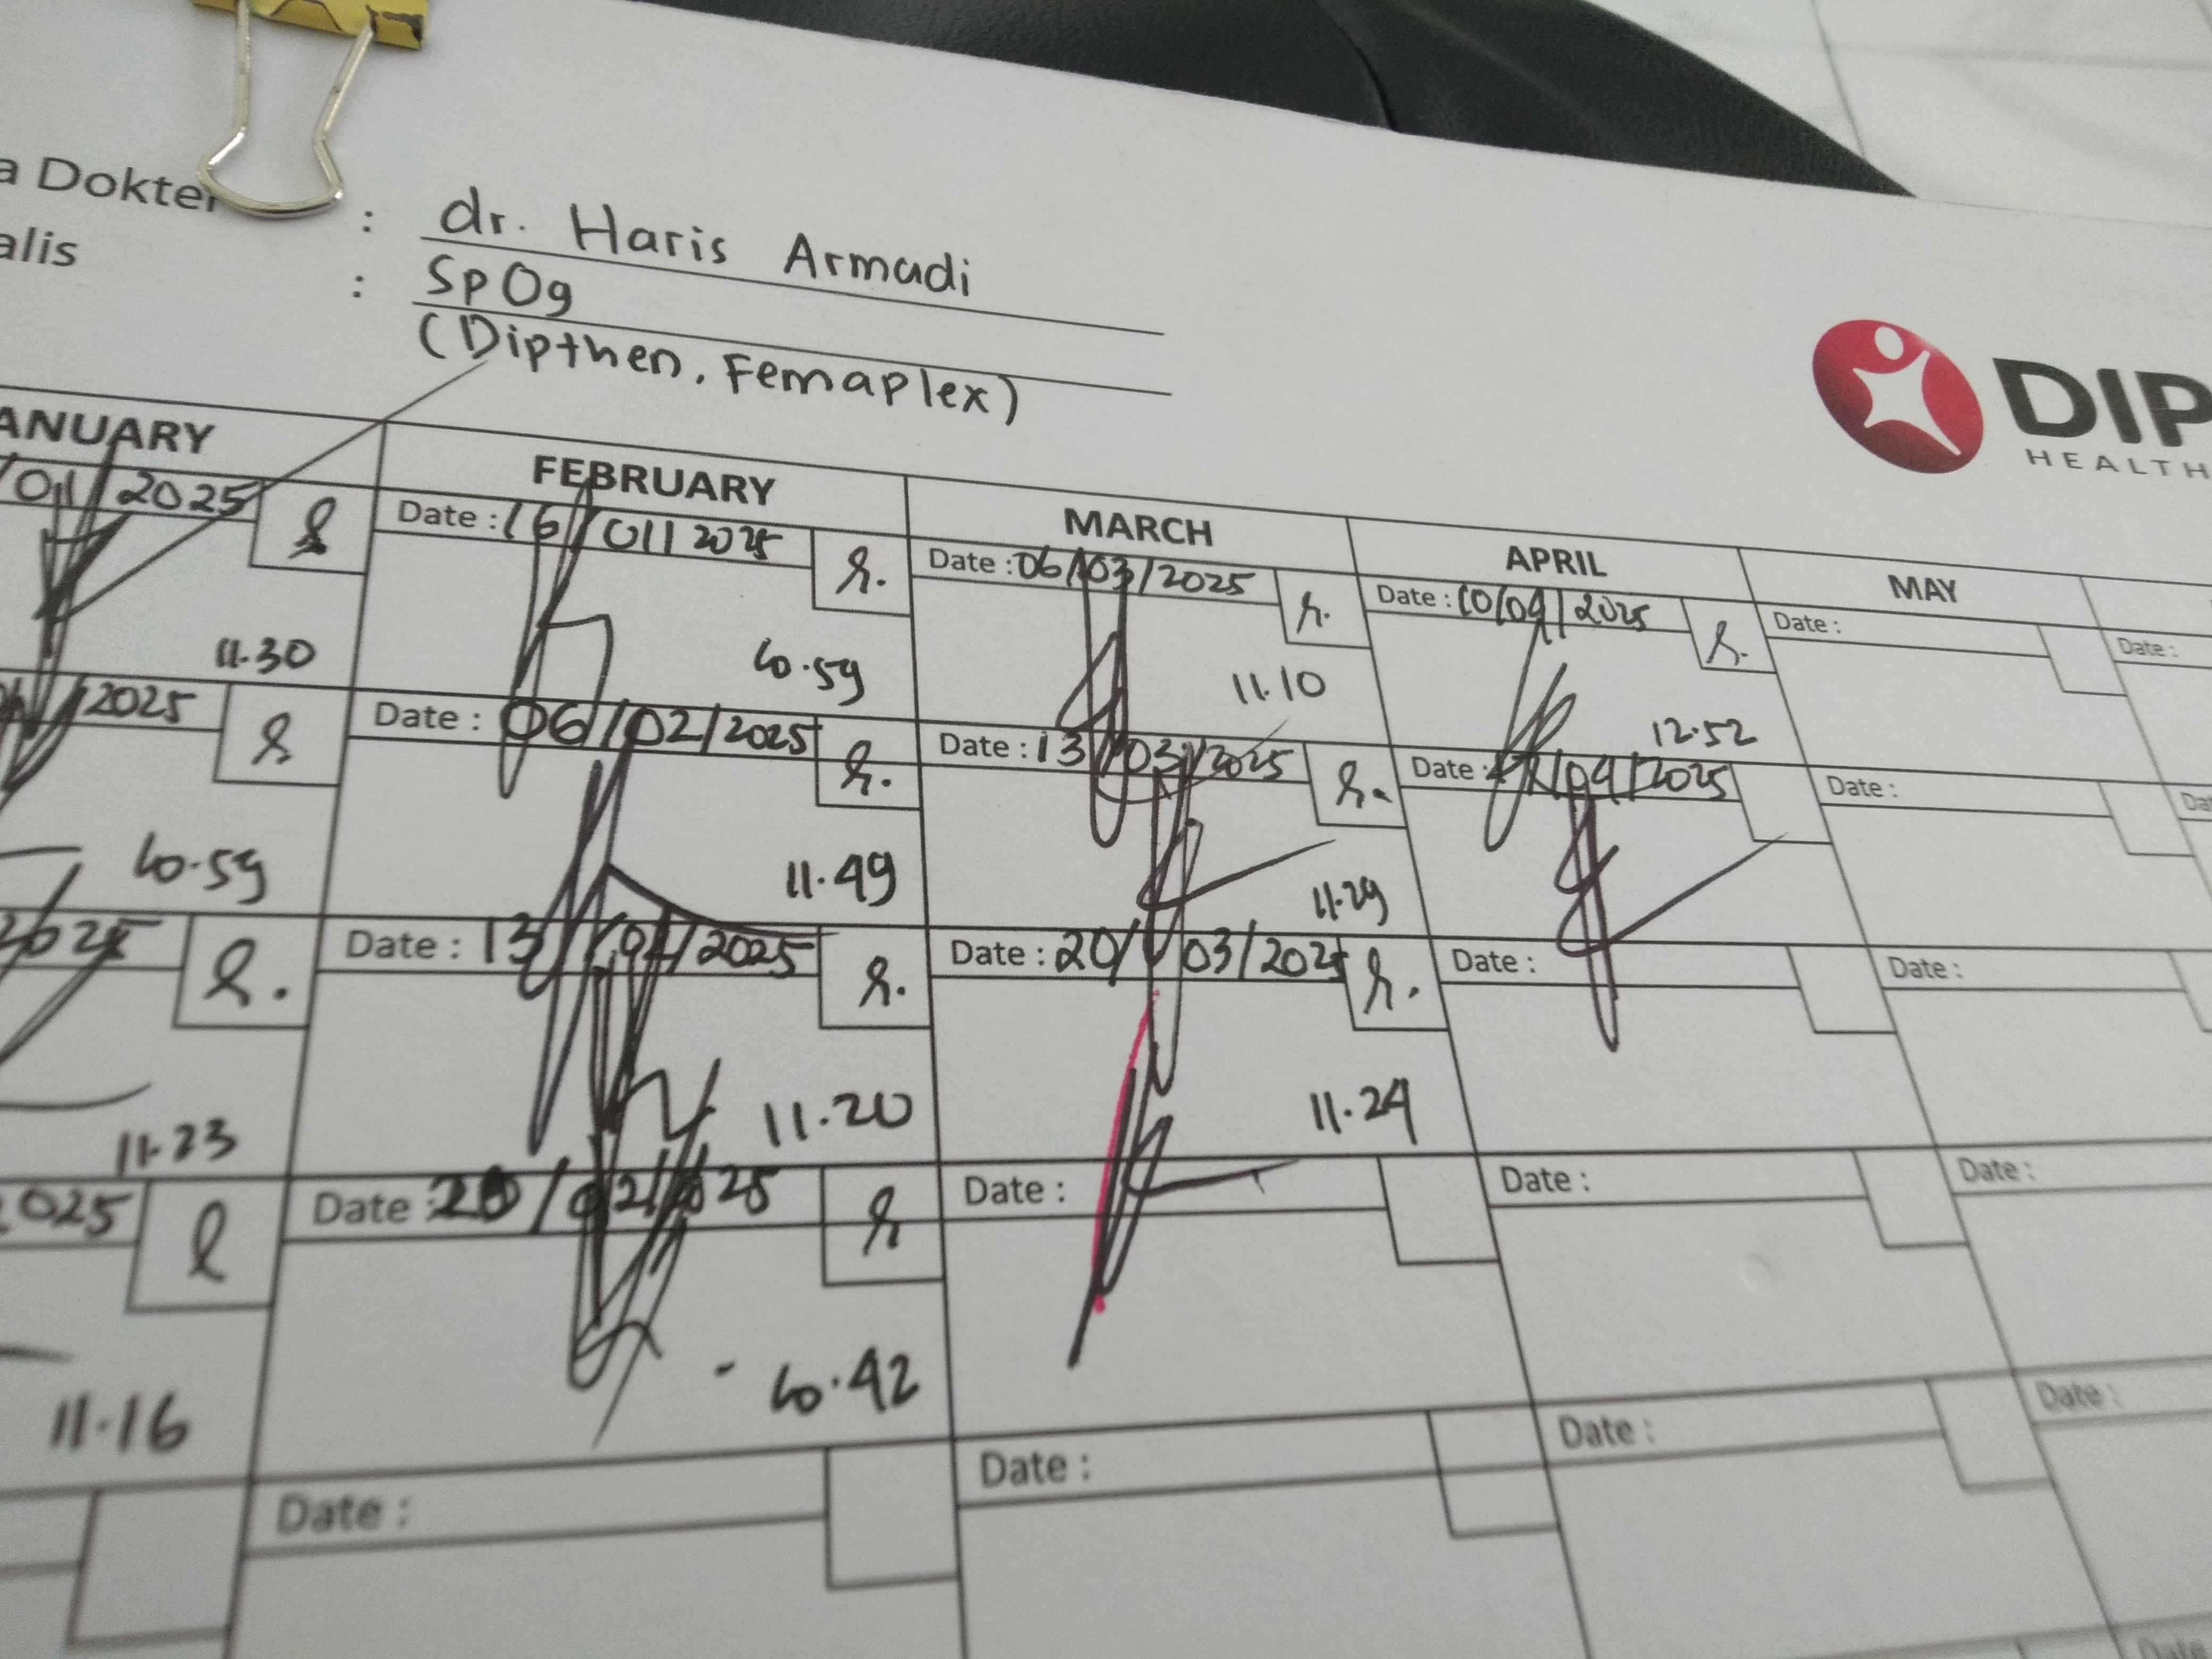 a Dokter : dr. Haris Armadi
alis : SpOg
(Dipthen, Femaplex)
DIP
HEALTH
ANUARY FEBRUARY MARCH APRIL MAY
/01/2025 Date : 16/01/2025 Date : 06/03/2025 Date : 10/04/2025 Date : Date :
11.30 10.59 11.10 12.52
2025 Date : 06/02/2025 Date : 13/03/2025 Date : /04/2025 Date :
10.59 11.49 11.29
2025 Date : 13/02/2025 Date : 20/03/2025 Date : Date :
11.23 11.20 11.24
2025 Date : 20/02/2025 Date : Date : Date :
11.16 10.42
Date : Date : Date : Date :